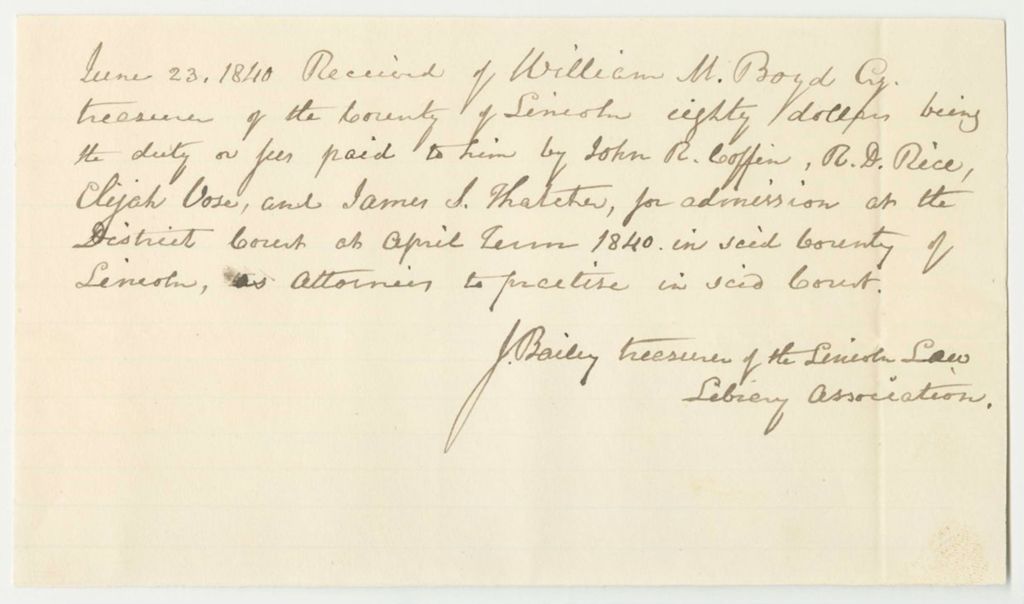 June 23, 1840 Received of William M. Boyd Esq.
treasurer of the County of Lincoln eighty dollars being
the duty or fees paid to him by John R. Coffin, R. D. Rice,
Elijah Vose, and James S. Thatcher, for admission at the
District Court at April Term 1840. in said County of
Lincoln, as Attornies to practise in said Court.
J. Bailey treasurer of the Lincoln Law
Library Association.